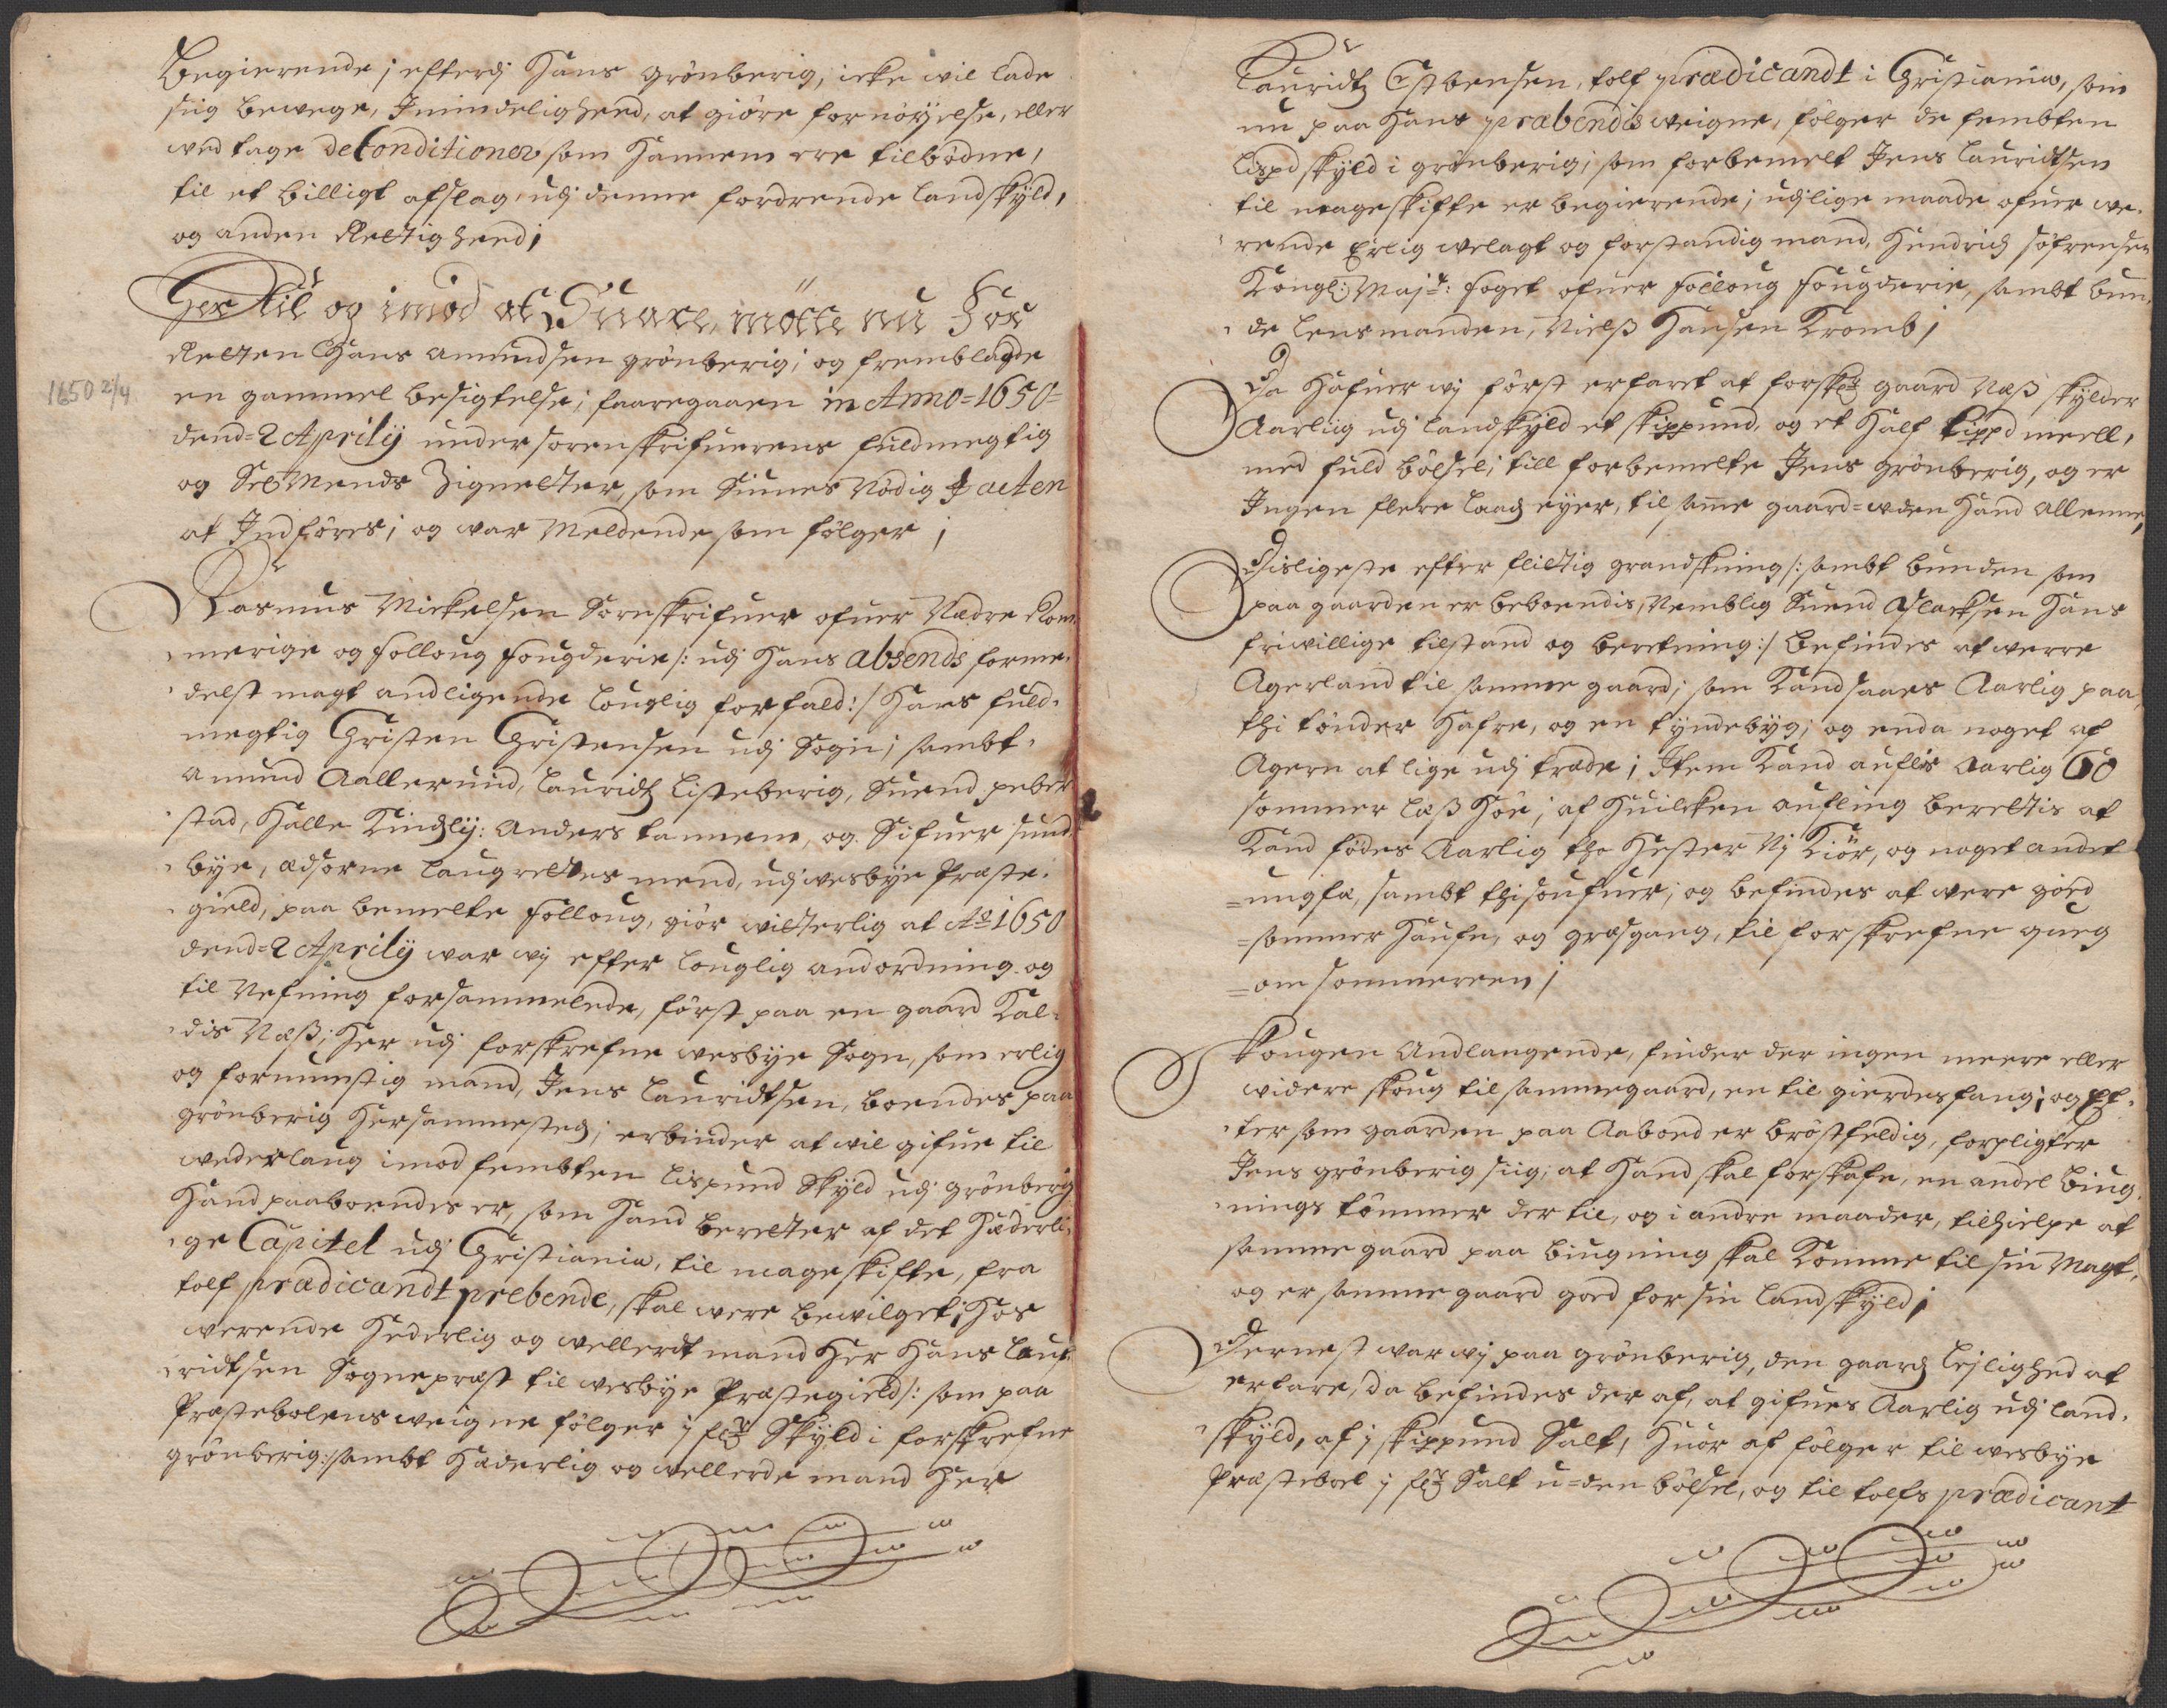 Begierende; efterdj Hans Grønberig, icke wil lade
siig bewege, J mindeligheed, at giøre fornøyelse, eller
wed tage de Conditioner som hannem ere tilbødne,
til et billigt afslag, udj denne fordrende landskyld,
og anden Rettigheed;
Her Til og imod at Suare, møtte nu For
Retten Hans Amundsen Grønberig; og fremblagde
en gammel besigtelse; faaregaaen in Anno = 1650 =
dend = 2 Aprilij under sorenskrifuerens fuldmegtig
og Sex Mends Zignetter, som Siunes Nødig J acten
at Jndføres; og war Meldende som følger;
1650 2/4
Rasmus Mickelsen Sornskrifuer ofuer Nædre Rom-
merige og Folloug Fougderie /: udj Hans absends forme-
delst magt andligende louglig forfald :/ Hans fuld-
megtig Christen Christensen udj Sogn; sambt
Amund Aallerund, Lauridtz Listeberig, Suend peber
stad, Halle Kindzlij: Anders tannem, og Sifuer sund-
bye, Edsorne laugrettes mend, udj wesbye Præste-
gield, paa bemelte Folloug, giør witterlig at Ao 1650
dend = 2 Aprily war wij effter louglig andordning og
til Nefning forsammelede, først paa en gaard Kal-
dis Næß; her udj forskrefne wesbye Sogn, som erlig
og fornumstig mand, Jens Lauridtsen, boendes paa
grønberig hersammesteds; erbinder at wil gifue til
wederlaug imod fembten lispund Skyld udj grønberig
Hand paaboendes er, som Hand beretter af det Hæderli-
ge Capitel udj Christiania, til mageskiffte, fra
tolf prædicandt prebende, skal were bewilget; Hos
werende Hederlig og wellerdt mand Her Hans Lau-
ridtsen Sognepræst til wesbye Præstegield /: som paa
Præstebolens weigne følger j Skyld i forskrefne
grønberig :/ sambt Hæderlig og wellerde mand Her
Lauridtz Estbensen, tolf prædicandt i Christiania, som
nu paa Hans præbendis weigne, følger de fembten
lispd skyld i grønberig; som forbemelt Jens Lauridtsen
til mageskiffte er begierende; udj lige maade ofuer we-
rende Erlig welagt og forstandig mand, Hendrich Søfrensen
Kongl: Maj:ts: foget ofuer Folloug Fougderie, sambt bun-
de lensmanden, Nielß Hansen Tromb;
Da Hafuer wij først erfaret at forsk: gaard Næß skylder
Aarliig udj landskyld et skippund, og et Half Lippd meell,
med fuld bøxsel; till forbemelte Jens grønberig, og er
Jngen flere laads eyer, til samme gaard = uden Hand allenne,
Disligeste efter flittig grandskning /: sambt bunden som
paa gaarden er beboendis, Nemblig Suend Aslacksen Hans
friwillige tilstand og beretning :/ befindes at werre
Agerland til samme gaard; som Kand saaes Aarlig paa,
thi tønder Hafre, og en tynde byg; og enda noget af
Agern at lige udj træde; Jtem Kand auflis Aarlig 60
sommer læß Høe; af Huilcken aufling berettis at
Kand fødes Aarlig tho Hester Nj Kiør, og noget andet
= ungfæ, sambt thi soufuer; og befindes at were goed
= sommer Haufn, og græsgang, til forskrefne queg
= om sommeren;
Skougen Andlangende, finder der ingen meere eller
widere skoug til samme gaard, en til gierdesfang; og Ef-
tersom gaarden paa Aaboed er brøstfeldig, forpligter
Jens grønberig siig; at Hand skal forskafe, en andel Biug-
nings tømmer der til, og i andre maader, tilhielpe at
samme gaard paa biugning skal Komme til sin Magt,
og er samme gaard goed for sin landskyld;
Dernest war wij paa grønberig, den gaards Lejlighed at
erfare, da befindes der af, at gifues Aarlig udj land-
skyld, af j skippund Salt, Huor af følger til wesbye
Præsteboel j Salt u = den bøxsel, og til tolfs prædicant